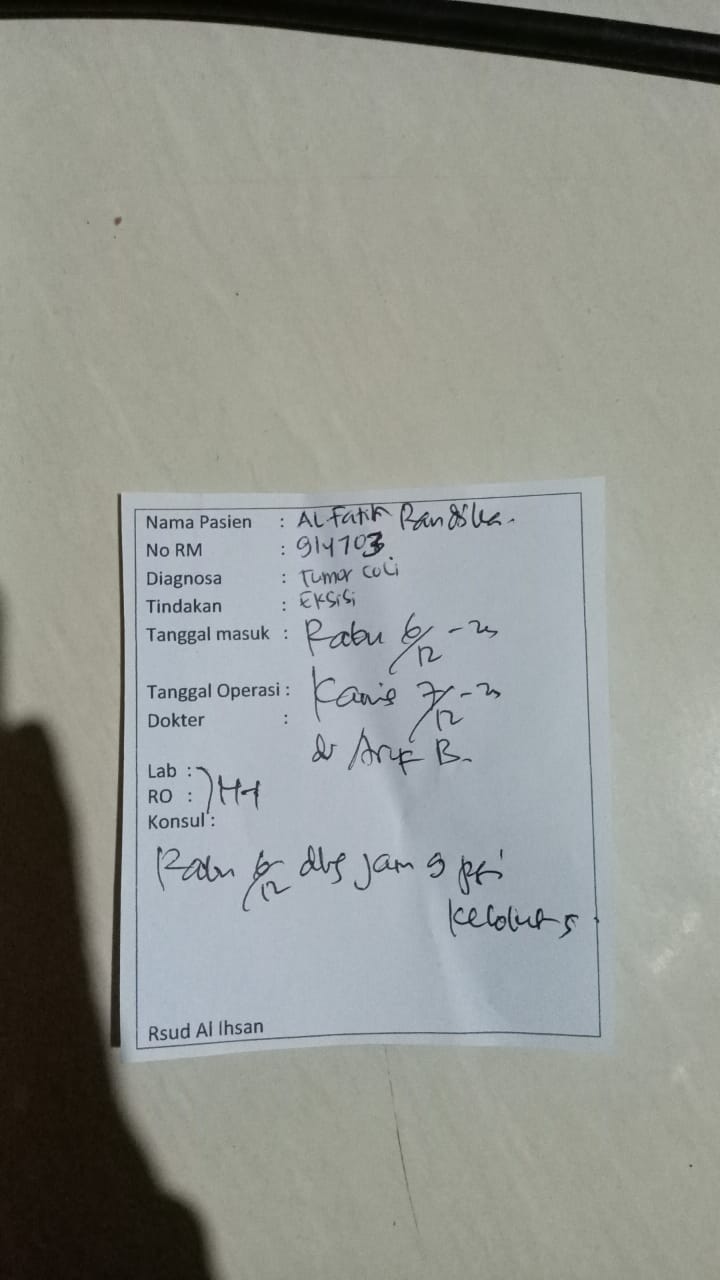 Nama Pasien : AL Fatih Bandika.
No RM : 914703
Diagnosa : Tumor coli
Tindakan : EKSISI
Tanggal masuk : Rabu 6/12 - 23
Tanggal Operasi : Kamis 7/12 - 23
Dokter :
dr Arif B.
Lab :
RO :
Konsul :
Rabu 6/12 dtg jam 9 pgi
Rsud Al Ihsan